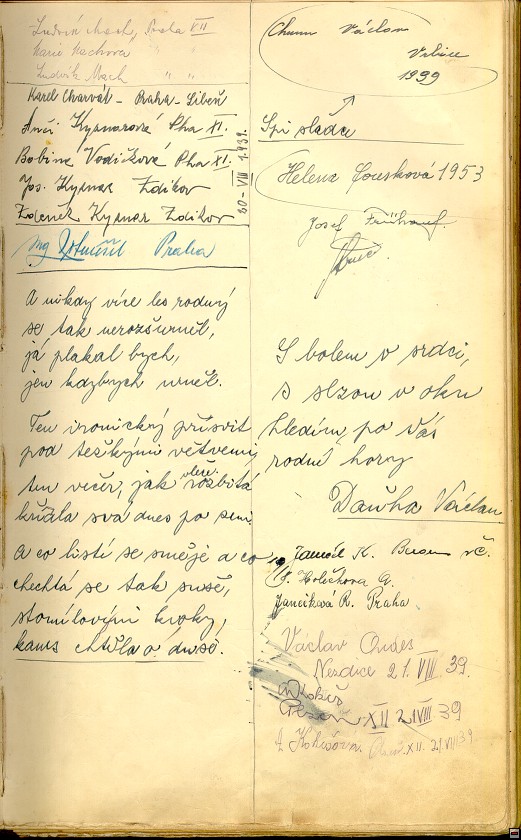 Ludvík Mach, Praha VII
Marie Machova " "
Ludvík Mach " "
Karel Charvát - Praha - Libeň
Anči Kyznarová Pha XI.
Bobina Vodičková Pha XI.
Jos. Kyznar Zdíkov
Zdeněk Kyznar Zdíkov
20-VIII 1939.
Ing Praha
A nikdy více les rodný
se tak nerozšuměl,
já plakal bych,
jen kdybych uměl.
Ten ironický přísvit
pod težkými větvemi,
ten večer, jak rozbitá
lžála svá dnes po zemi.
A co listí se směje a co
chechtá se tak suše,
stomílovými kroky,
kams chtěla ó duše.
Chum Václav
Vrbice
1939
Spi sladce
Helena Cousková 1953
Josef
S bolem v srdci,
s slzou v oku
hledím po Vás
rodné hory
Daňha Václav
K.
Holečkova A.
Jančíková R. Praha
Václav Ondes
Nezdice 21. VIII. 39.
Plzeň XII 21 VIII 39
A Kokešova. XII. 21 VIII 39.